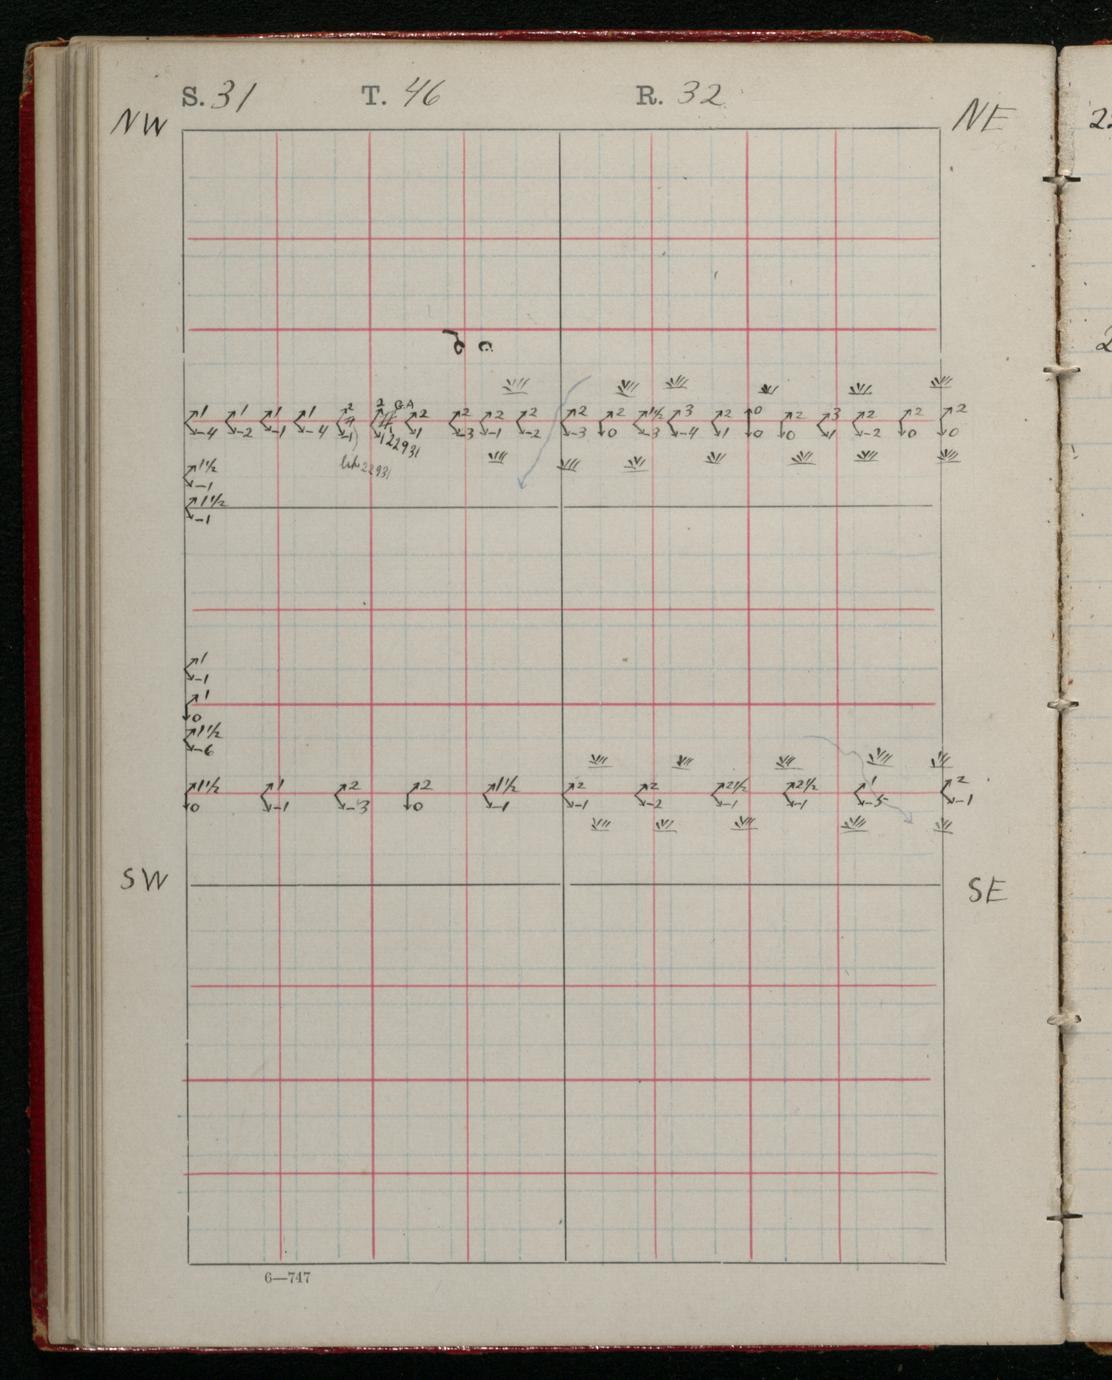 S. 31 T. 46 R. 32
NW NE
2 2 G.A
1 1 1 1 2 2 2 2 2 2 1½ 3 2 0 2 3 2 2 2
-4 -2 -1 -4 -1 1 1 -3 -1 -2 -3 0 -3 -4 1 0 0 1 -2 0 0
22931
22931
1½
-1
1½
-1
1
-1
1
0
1½
-6
1½ 1 2 2 1½ 2 2 2½ 2½ 1 2
0 -1 -3 0 -1 -1 -2 -1 -1 -5 -1
SW SE
6—747